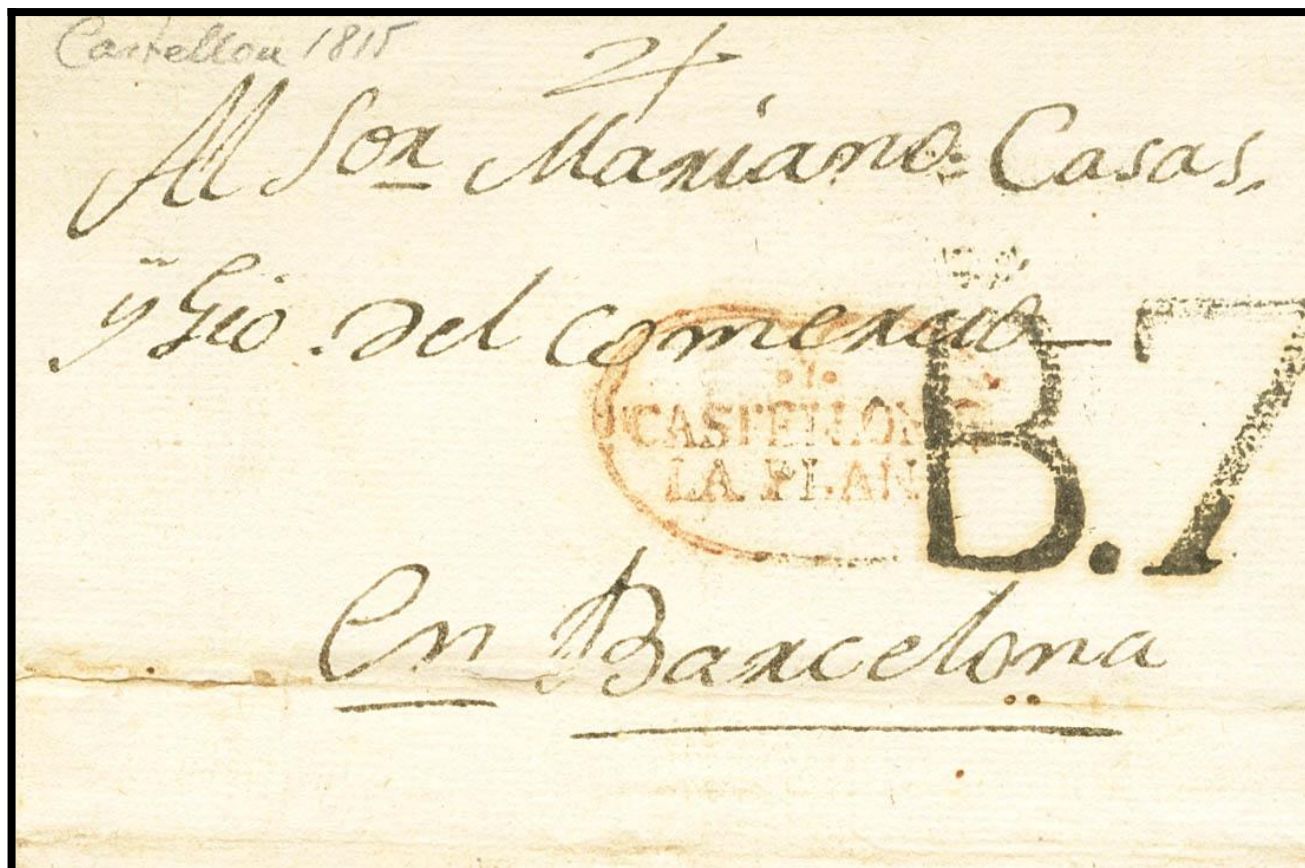 Castellon 1815
Al Sor Mariano Casas,
y Gio del comercio
CASTELLON
LA PLAN
B.7
En Barcelona